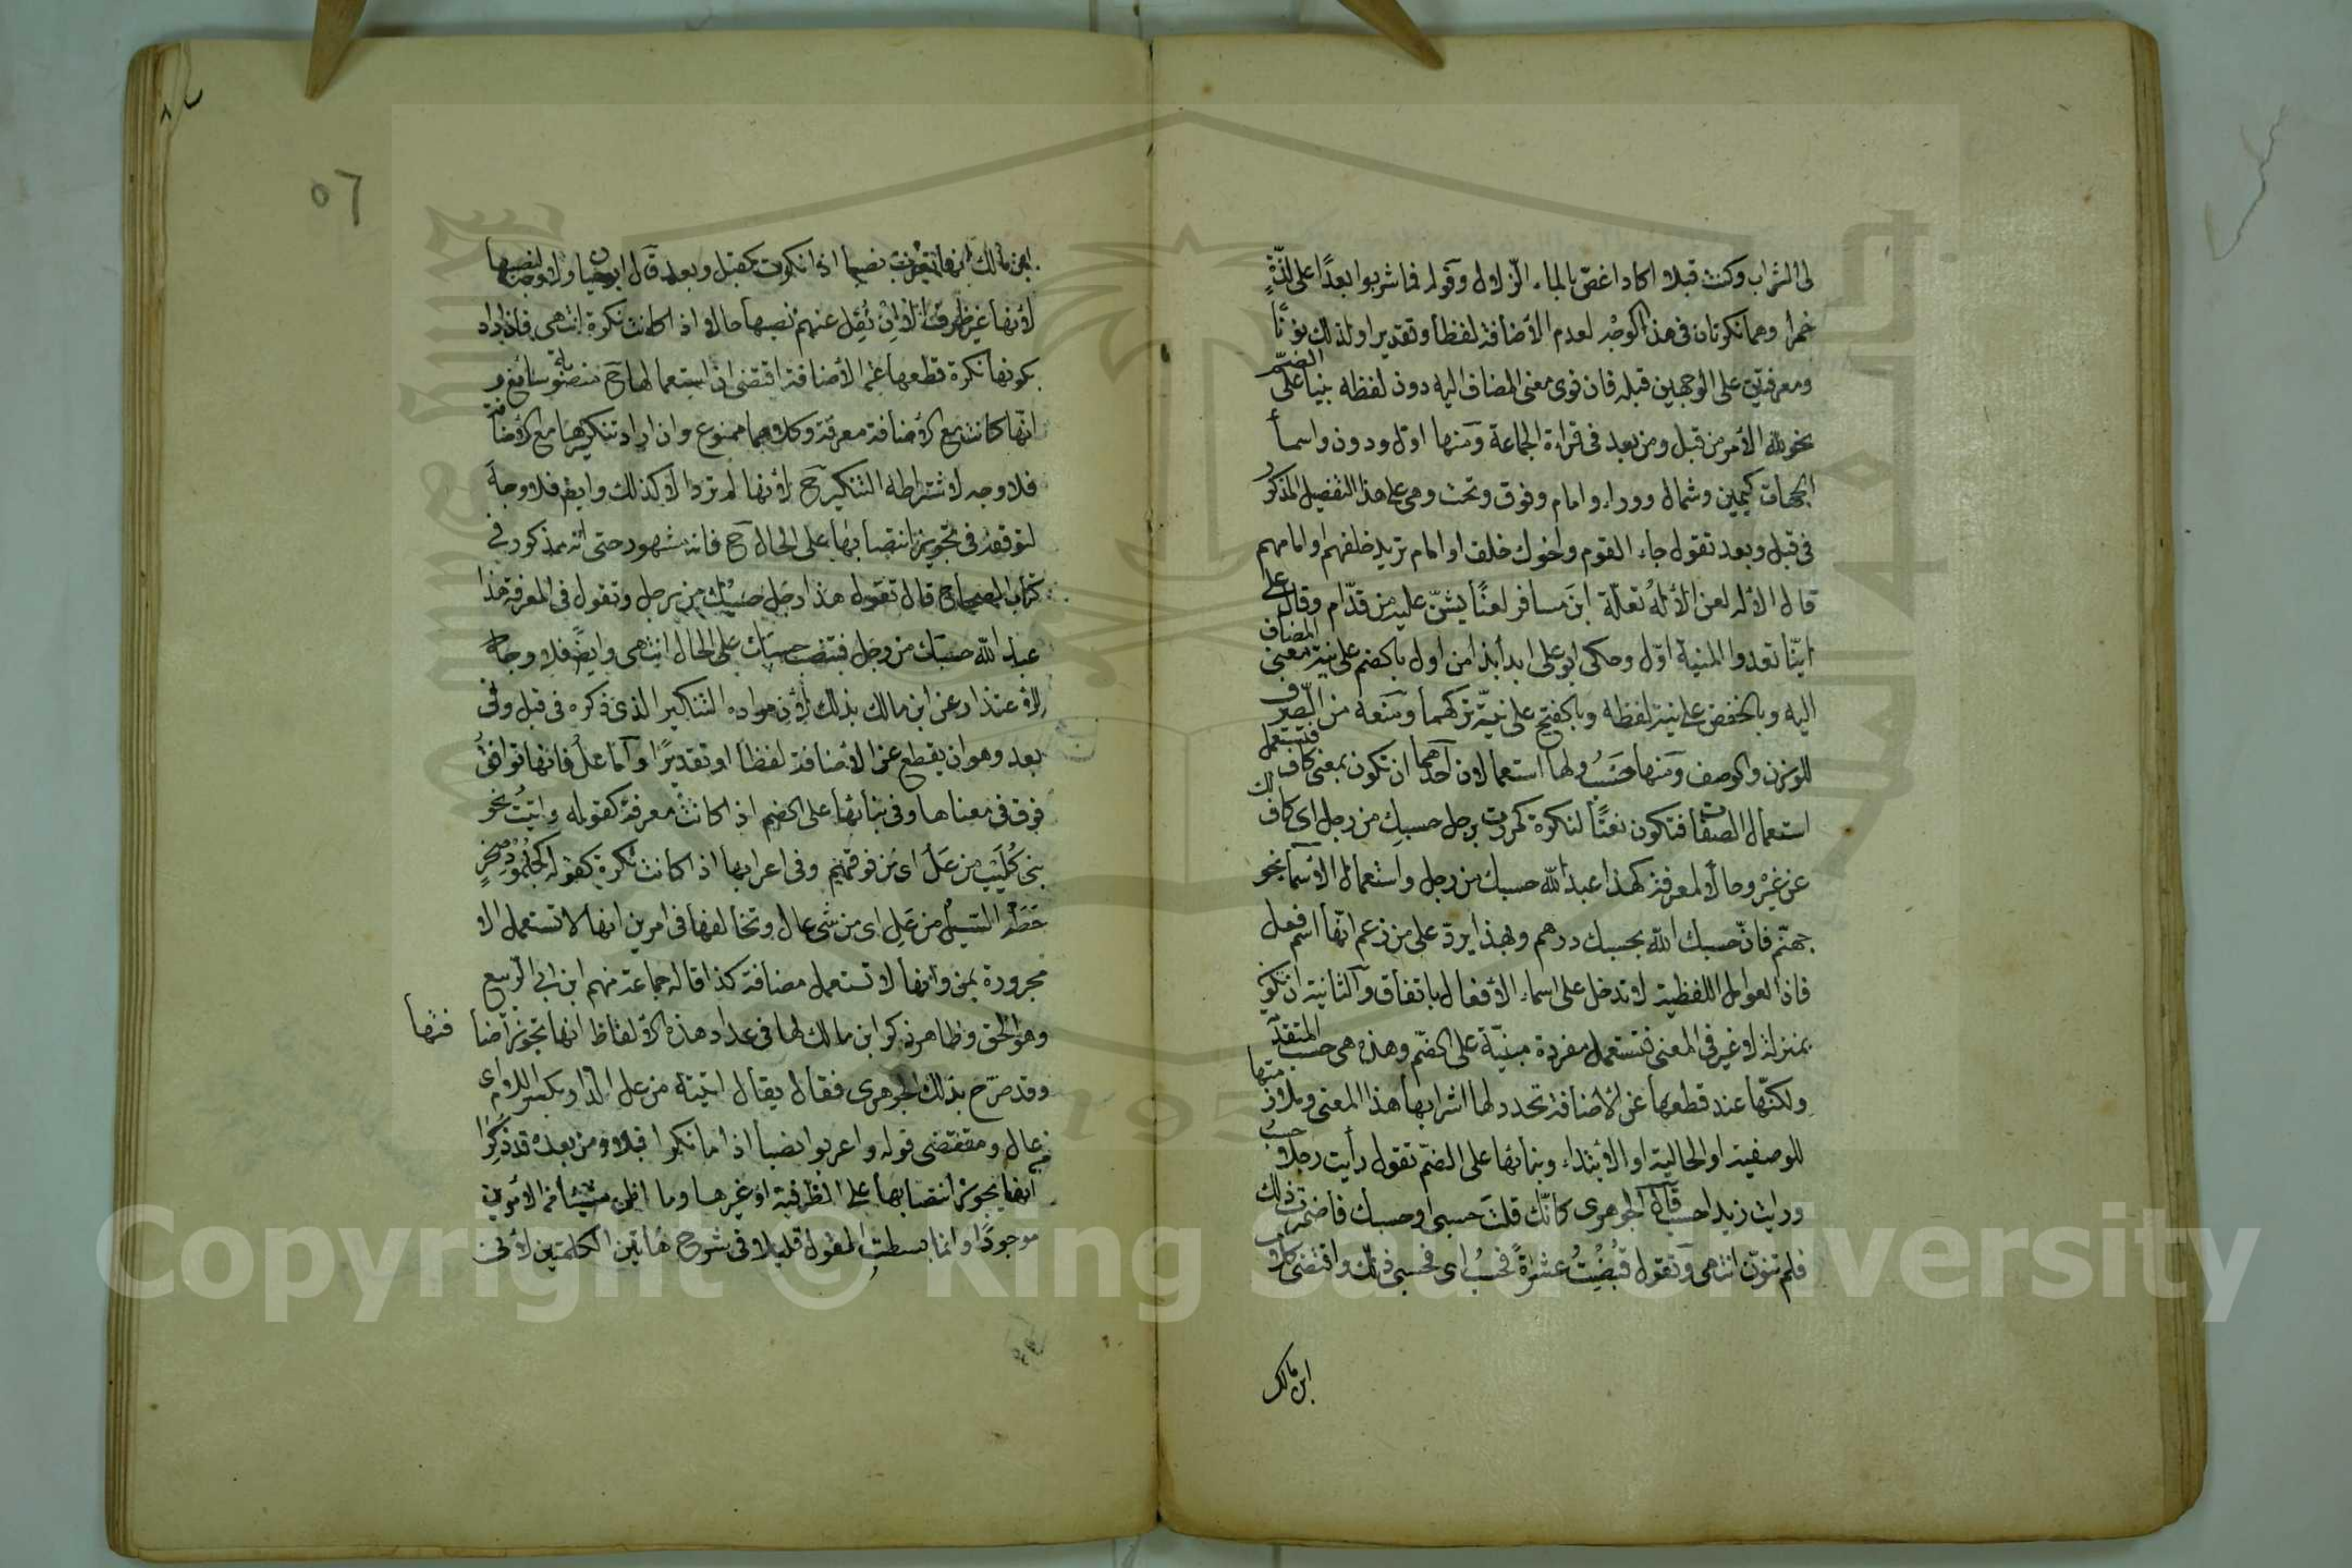 لى الشراب وكنت قبلا اكاد اغص بالماء الزلال وقوله فما شربوا بعدًا على لذّةٍ
خمرا وهما نكرتان في هذا الوجه لعدم الأضافة لفظا وتقديرا ولذلك نوّنا
ومعرفتين على الوجهين قبله فان نوى معنى المضاف اليه دون لفظه بنيا على الضمّ
نحو لله الأمر من قبل ومن بعد في قراءة الجماعة ومنها اول ودون واسماء
الجهات كيمين وشمال ووراء وامام وفوق وتحت وهي على هذا التفصيل المذكور
في قبل وبعد تقول جاء القوم واخوك خلف او امام تريد خلفهم او امامهم
قال الأله لعن الألهُ تعلّة ابنَ مسافر لعنًا يشنّ عليه من قدّام وقال على
ايّنا تعدوا المنية اوّل وحكى ابو على ابدأ بذا من اول بالضم على نية معنى المضاف
اليه وبالخفض على نية لفظه وبالفتح على نيّة تركهما ومنعه من الصرف
للوزن والوصف ومنها حَسْبُ ولها استعمالان احدهما ان تكون بمعنى كاف فتستعمل
استعمال الصفات فتكون نعتًا لنكرة كمررت برجل حسبِك من رجل اى كاف لك
عن غيره وحالًا لمعرفة كهذا عبد الله حسبك من رجل واستعمال الأسماء نحو حسبهم
جهنّم فانّ حسبك الله بحسبك درهم وبهذا يردّ على من زعم انّها اسم فعل
فان العوامل اللفظية لا تدخل على اسماء الأفعال باتفاق والثانية ان تكون
بمنزلة لا غير في المعنى فتستعمل مفردة مبنيّة على الضمّ وهذه هى حسب المتقدّمة
ولكنّها عند قطعها عن الأضافة تجدد لها اشرابها هذا المعنى وملازمتها
للوصفية او الحالية او الأبتداء وبنائها على الضمّ تقول رأيت رجلا حسبُ
ورايت زيدا حسب قال الجوهرى كانّك قلت حسبى او حسبك فاضمرت ذلك
فلم تنوّن انتهى وتقول قبضتُ عشرةً فحسبُ اى فحسبى ذلك واقتضى كلام
ابن مالك
٥٦
ابن مالك انها تعرب نصبا اذا نكرت كقبل وبعد قال ابو حيان ولا وجه لنصبها
لأنها غير ظرف الا ان نُقِل عنهم نصبها حالا اذا كانت نكرة انتهى فان اراد
بكونها نكرة قطعها عن الأضافة اقتضى ان استعمالها ح منصوبة سائغ و
انّها كانت مع الأضافة معرفة وكلاهما ممنوع وان اراد تنكيرها مع الأضافة
فلا وجه لاشتراطه التنكير ح لأنها لم ترد الا كذلك وايضا فلا وجه
لتوقفه في تجويز انتصابها على الحال ح فانه مشهور حتى انه مذكور في
كتاب الصحاح قال تقول هذا رجل حسبُك من رجل وتقول في المعرفة هذا
عبد الله حسبَك من رجل فتنصب حسبك على الحال انتهى وايضا فلا وجه
للأعتذار عن ابن مالك بذلك لأن مراده التنكير الذى ذكره في قبل وفى
بعد وهو ان يقطع عن الأضافة لفظا او تقديرًا وامّا علُ فانها توافق
فوق في معناها وفى بنائها على الضم اذا كانت معرفة كقوله واتيتُ نحو
بنى كُلَيْبٍ من عَلُ اى من فوقهم وفى اعرابها اذا كانت نكرة كقوله كجلمود صخرٍ
حَطّه السّيلُ من عَلِ اى من شئ عال وتخالفها في امرين انها لا تستعمل الا
مجرورة بمن وانها لا تستعمل مضافة كذا قاله جماعة منهم ابن ابى الربيع
وهو الحق وظاهر ذكر ابن مالك لها في عداد هذه الالفاظ انها تجوز اضافتها
وقد صرّح بذلك الجوهرى فقال يقال اتيته من عل الدار بكسر اللام اى
من عال ومقتضى قوله واعربوا نصبا اذا ما نكرا قبلا وما من بعده قد ذُكِرا
انها يجوز انتصابها على الظرفية او غيرها وما اظن شيئا من الأمرين
موجودًا وانما بسطت القول قليلا في شرح هاتين الكلمتين لأنى
Copyright © King Saud University
195